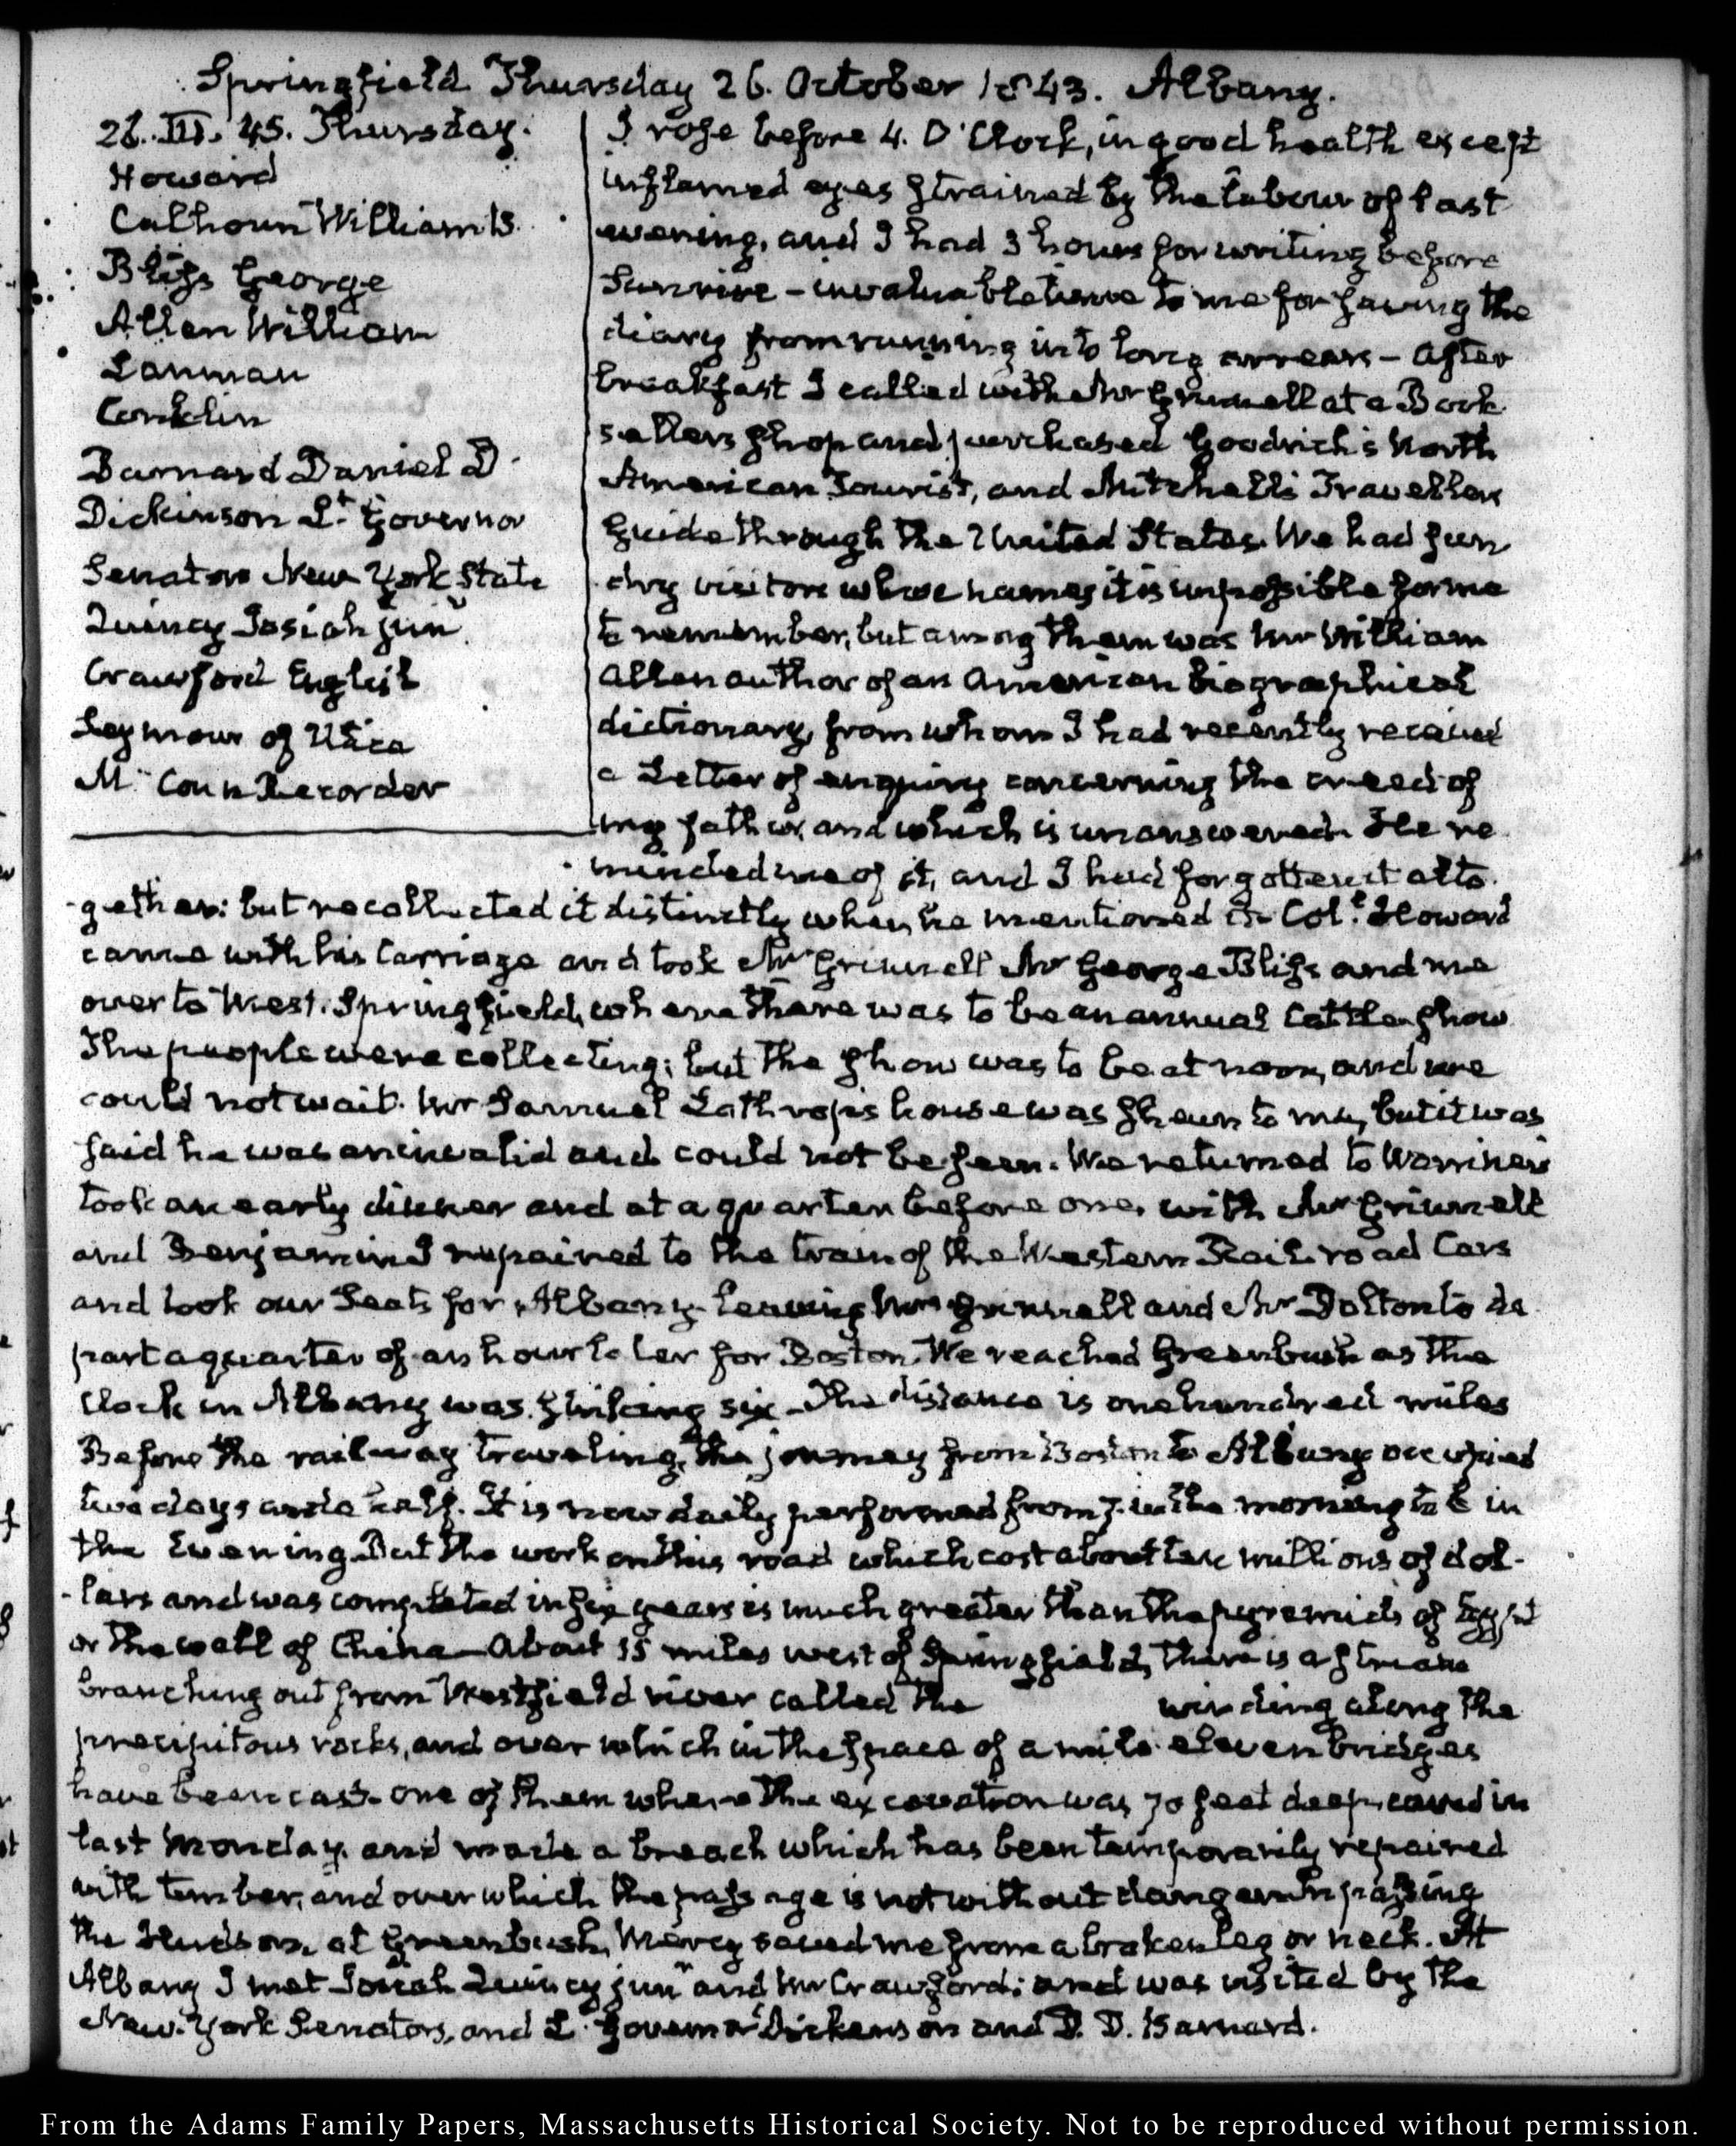 Springfield Thursday 26. October 1843. Albany.
26. III. 45. Thursday.
Howard
Calhoun William B.
Bliss George
Allen William
Lanman
Conklin
Barnard Daniel D.
Dickinson Lt. Governor
Senators New York State
Quincy Josiah junr.
Crawford English
Seymour of Utica
Mc. Coun Recorder
I rose before 4. O'Clock, in good health except
inflamed eyes strained by the labour of last
evening, and I had 3 hours for writing before
Sunrise – invaluable time to me for saving the
diary from running into long arrears – After
breakfast I called with Mr Grinnell at a Book
sellers shop and purchased Goodrich's North
American Tourist, and Mitchell's Travellers
Guide through the United States. We had sun
dry visitors whose names it is impossible for me
to remember, but among them was Mr William
Allen author of an American Biographical
dictionary, from whom I had recently received
a Letter of enquiry concerning the creed of
my father, and which is unanswered. He re
minded me of it, and I had forgotten it alto-
-gether: but recollected it distinctly when he mentioned it. Col. Howard
came with his Carriage and took Mr Grinnell Mr George Bliss and me
over to West. Springfield, where there was to be an annual Cattle show
The people were collecting; but the show was to be at noon, and we
could not wait. Mr Samuel Lathrop's house was shewn to me, but it was
said he was an invalid and could not be seen. We returned to Warriner's
took an early dinner and at a quarter before one, with Mr Grinnell
and Benjamin I repaired to the train of the Western Rail road Cars
and took our Seats for Albany leaving Mrs Grinnell and Mr Dolton to de
part a quarter of an hour later for Boston. We reached Greenbush as the
clock in Albany was striking six – The distance is one hundred miles
Before the railway traveling, the journey from Boston to Albany occupied
two days and a half. It is now daily performed from 7. in the morning to 6 in
the Evening. But the work on this road which cost about ten millions of dol-
-lars and was completed in six years is much greater than the pyramids of Egypt
or the wall of China – About 15 miles west of Springfield, there is a stream
branching out from Westfield river called the winding along the
precipitous rocks, and over which in the space of a mile eleven bridges
have been cast – one of them where the excavation was 70 feet deep, caved in
last Monday, and made a breach which has been temporarily repaired
with timber, and over which the passage is not without danger. In passing
the Hudson, at Greenbush, Mercy saved me from a broken leg or neck. At
Albany I met Josiah Quincy junr and Mr Crawford; and was visited by the
New-York Senators, and Lt Governor Dickenson and D. D. Barnard.
From the Adams Family Papers, Massachusetts Historical Society. Not to be reproduced without permission.